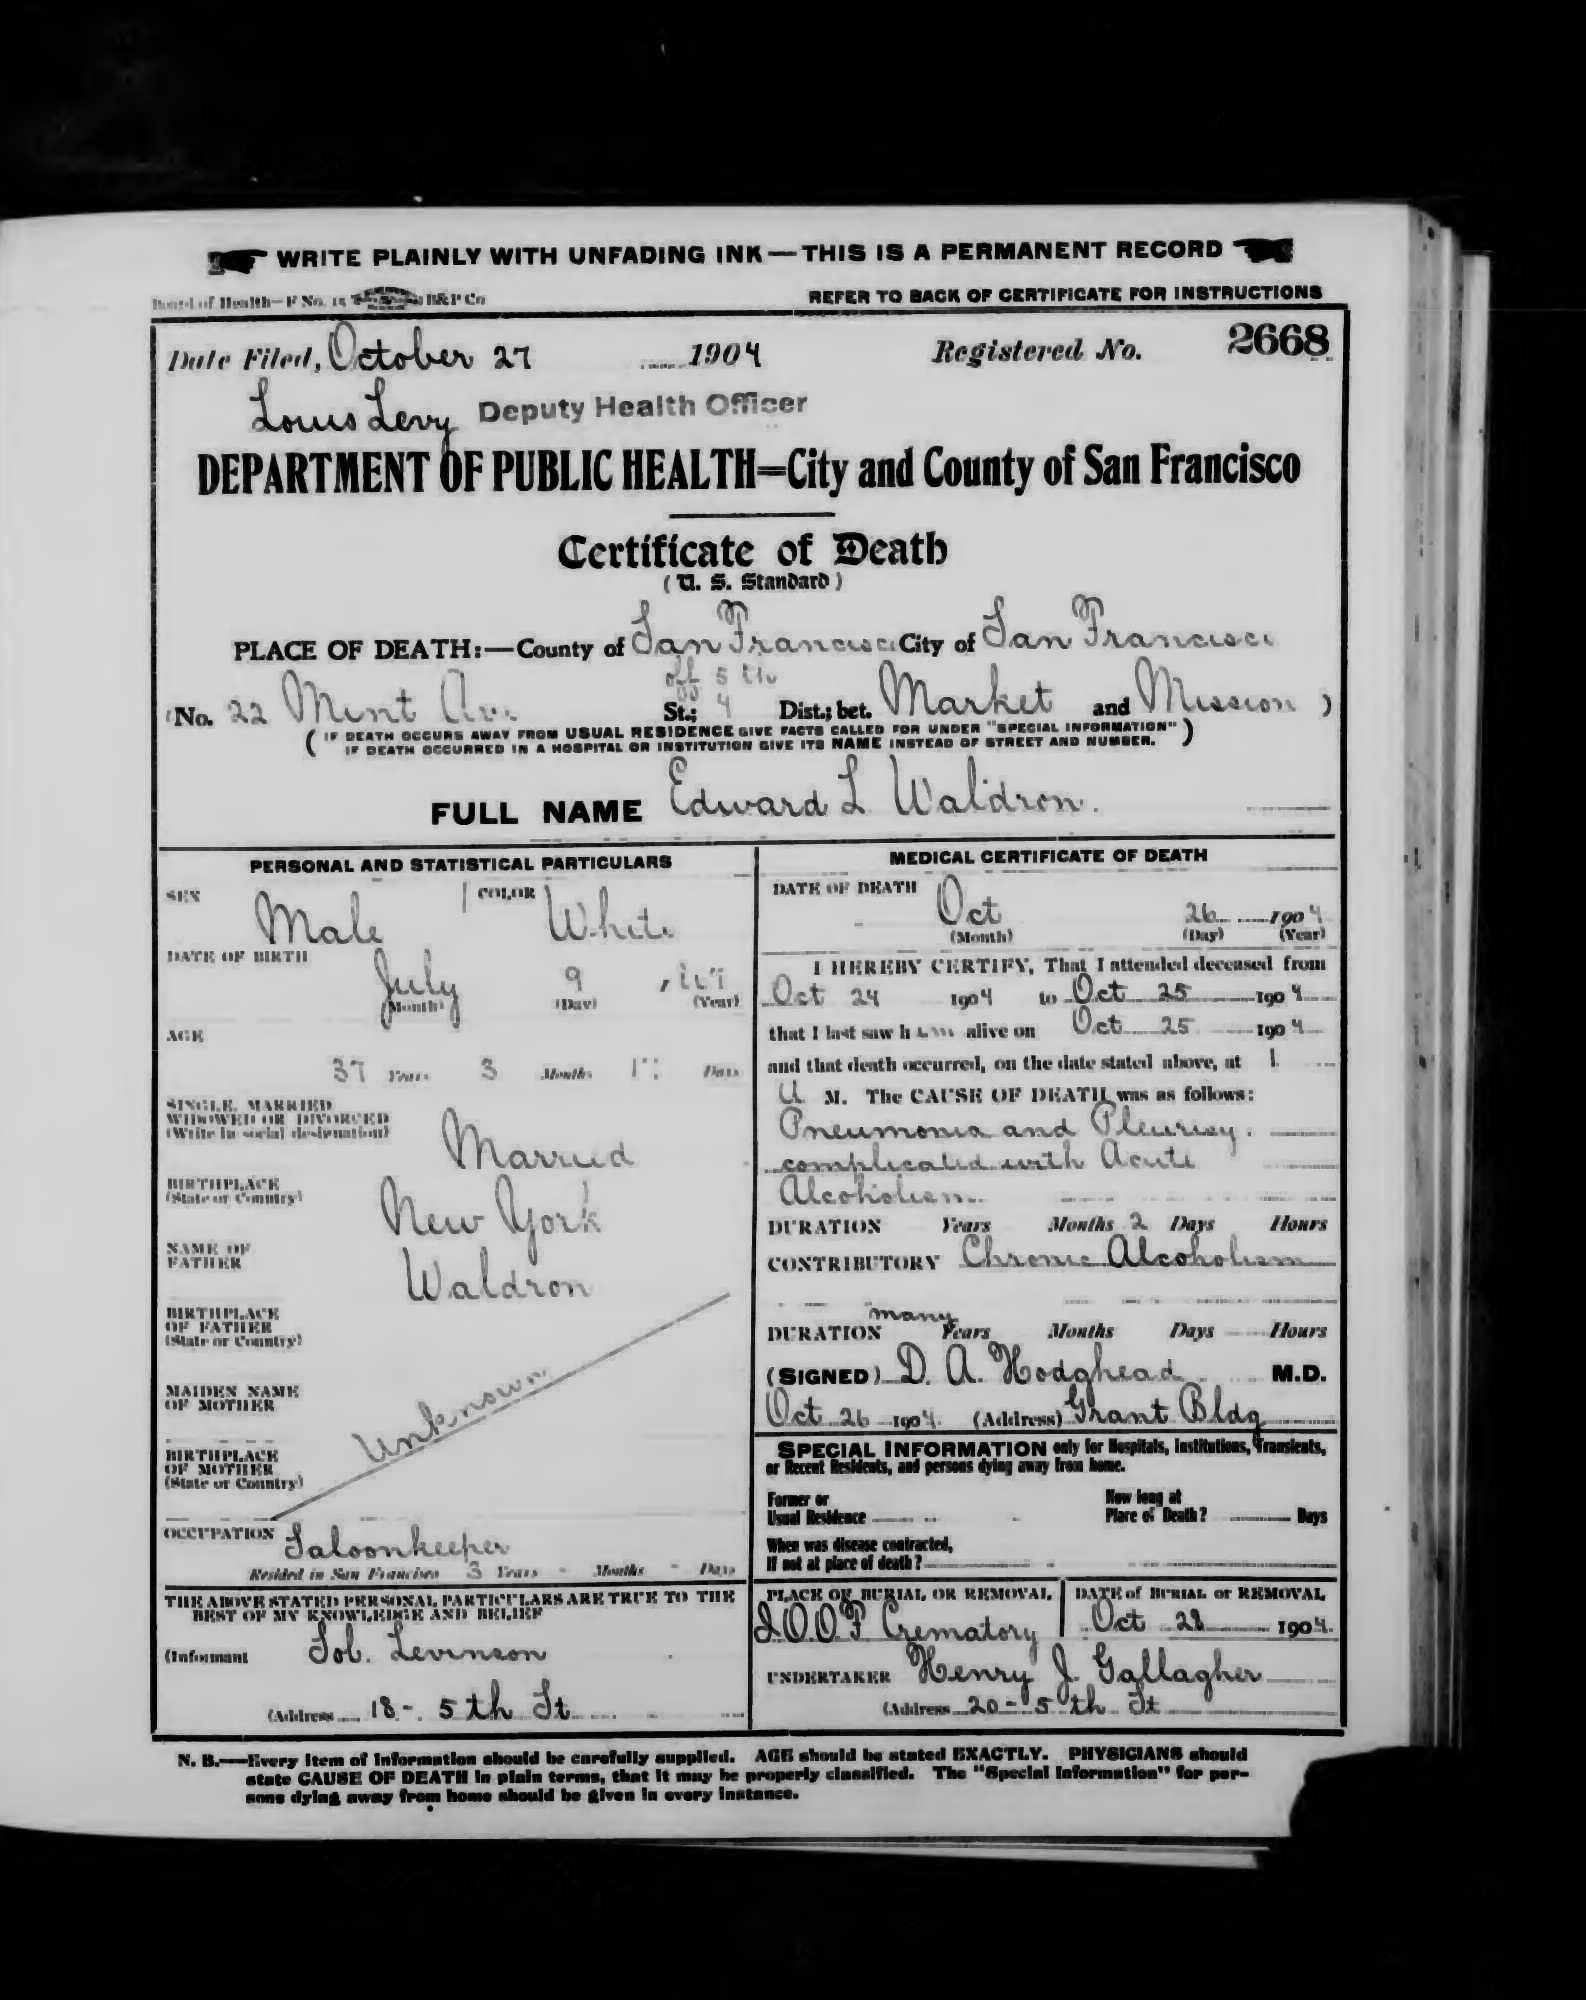 WRITE PLAINLY WITH UNFADING INK—THIS IS A PERMANENT RECORD
Board of Health—F No. 15 B&P Co
REFER TO BACK OF CERTIFICATE FOR INSTRUCTIONS
Date Filed, October 27 1904 Registered No. 2668
Louis Levy Deputy Health Officer
DEPARTMENT OF PUBLIC HEALTH=City and County of San Francisco
Certificate of Death
(U. S. Standard)
PLACE OF DEATH:—County of San Francisco City of San Francisco
off 5th
(No. 22 Mint Ave St.; 4 Dist.; bet. Market and Mission )
(IF DEATH OCCURS AWAY FROM USUAL RESIDENCE GIVE FACTS CALLED FOR UNDER "SPECIAL INFORMATION"
IF DEATH OCCURRED IN A HOSPITAL OR INSTITUTION GIVE ITS NAME INSTEAD OF STREET AND NUMBER.)
FULL NAME Edward L Waldron.
PERSONAL AND STATISTICAL PARTICULARS
SEX Male COLOR White
DATE OF BIRTH
July 9
(Month) (Day) (Year)
AGE
37 Years 3 Months Days
SINGLE, MARRIED
WIDOWED OR DIVORCED
(Write in social designation)
Married
BIRTHPLACE
(State or Country)
New York
NAME OF
FATHER
Waldron
BIRTHPLACE
OF FATHER
(State or Country)
MAIDEN NAME
OF MOTHER
Unknown
BIRTHPLACE
OF MOTHER
(State or Country)
OCCUPATION Saloonkeeper
Resided in San Francisco 3 Years - Months - Days
THE ABOVE STATED PERSONAL PARTICULARS ARE TRUE TO THE
BEST OF MY KNOWLEDGE AND BELIEF
(Informant Sol. Levinson
(Address 18- 5th St
MEDICAL CERTIFICATE OF DEATH
DATE OF DEATH Oct 26 1904
(Month) (Day) (Year)
I HEREBY CERTIFY, That I attended deceased from
Oct 24 1904 to Oct 25 1904
that I last saw him alive on Oct 25 1904
and that death occurred, on the date stated above, at 1
a M. The CAUSE OF DEATH was as follows:
Pneumonia and Pleurisy.
complicated with Acute
Alcoholism
DURATION Years Months 2 Days Hours
CONTRIBUTORY Chronic Alcoholism
many
DURATION Years Months Days Hours
(SIGNED) D. A. Hodghead M.D.
Oct 26 1904. (Address) Grant Bldg
SPECIAL INFORMATION only for Hospitals, Institutions, Transients,
or Recent Residents, and persons dying away from home.
Former or
Usual Residence
How long at
Place of Death? Days
When was disease contracted,
If not at place of death?
PLACE OF BURIAL OR REMOVAL DATE of BURIAL or REMOVAL
I.O.O.F Crematory Oct 28 1904.
UNDERTAKER Henry J. Gallagher
(Address 20- 5th St
N. B.—Every item of information should be carefully supplied. AGE should be stated EXACTLY. PHYSICIANS should
state CAUSE OF DEATH in plain terms, that it may be properly classified. The "Special Information" for per-
sons dying away from home should be given in every instance.